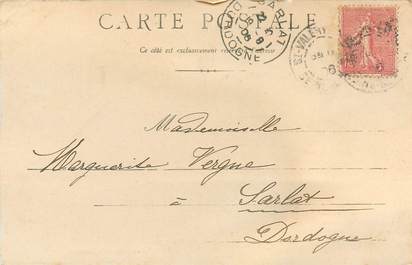 CARTE POSTALE
Ce côté est exclusivement réservé à l'adresse
SARLAT
DORDOGNE
Mademoiselle
Marguerite Vergne
à Sarlat
Dordogne